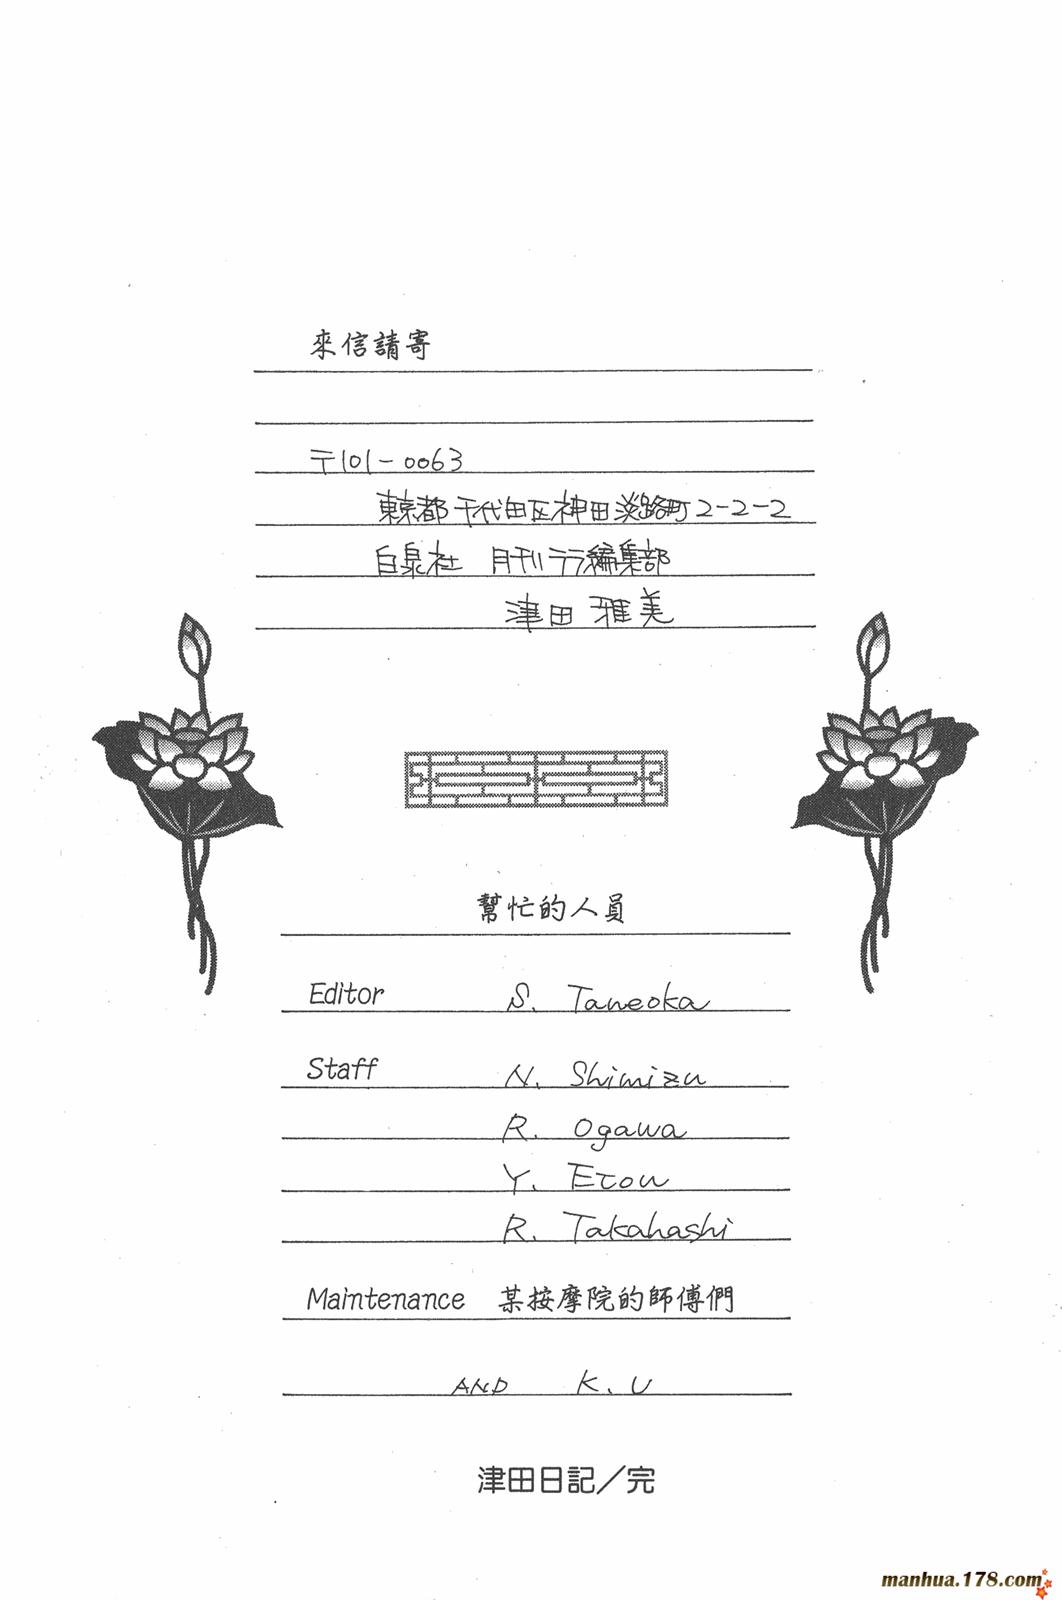 來信請寄
〒101-0063
東京都千代田区神田淡路町2-2-2
白泉社 月刊ララ編集部
津田 雅美
幫忙的人員
Editor S. Taneoka
Staff N. Shimizu
R. Ogawa
Y. Etou
R. Takahashi
Maintenance 某按摩院的師傅們
AND K. U
津田日記／完
manhua.178.com